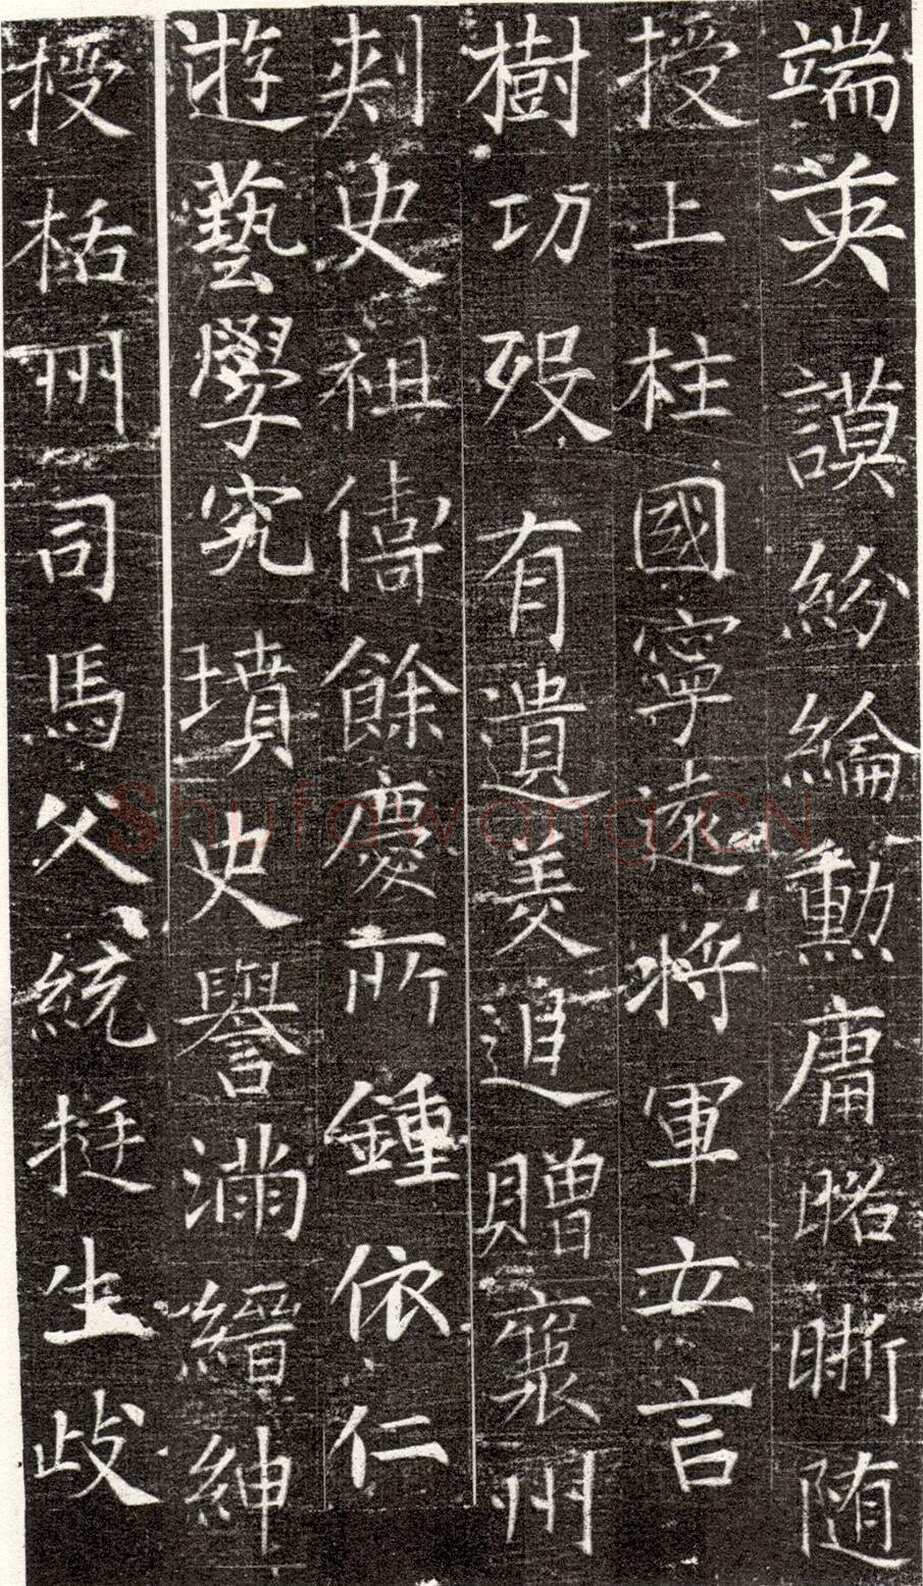 端英謨紛綸勳庸昭晰随
授上柱國寧遠將軍立言
樹功歿有遺美追贈襄州
刾史祖儔餘慶所鍾依仁
遊藝學究墳史譽滿縉紳
授栝州司馬父統挺生歧
Shufawang.CN